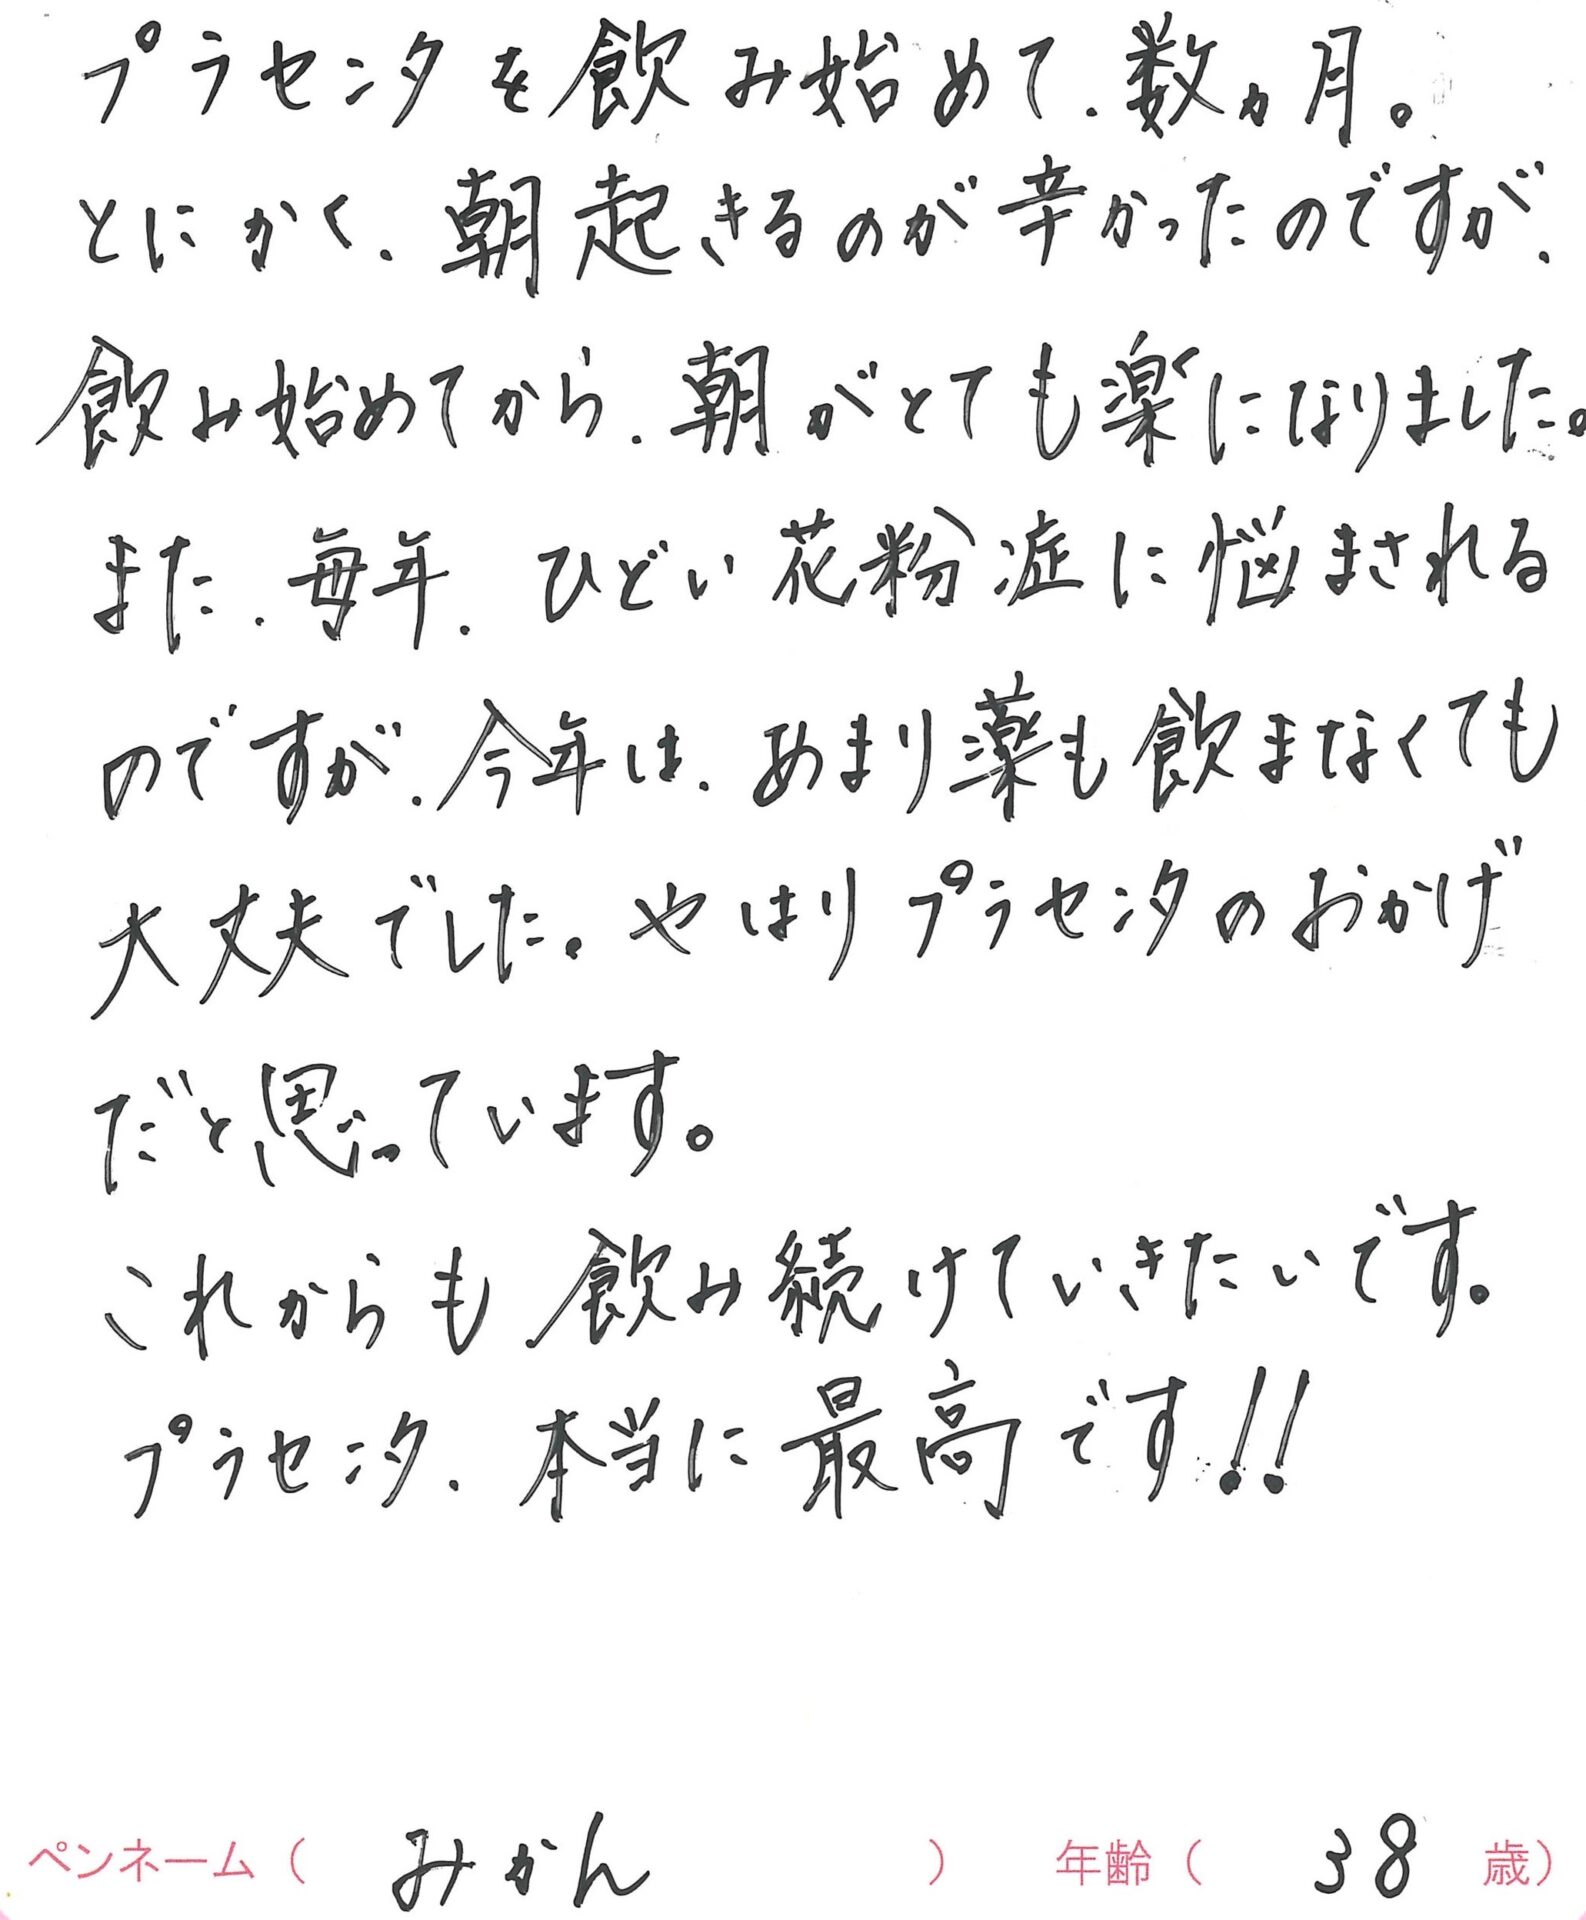 プラセンタを飲み始めて、数ヵ月。
とにかく、朝起きるのが辛かったのですが、
飲み始めてから、朝がとても楽になりました。
また、毎年、ひどい花粉症に悩まされる
のですが、今年は、あまり薬も飲まなくても
大丈夫でした。やはりプラセンタのおかげ
だと思っています。
これからも飲み続けていきたいです。
プラセンタ、本当に最高です!!
ペンネーム（ みかん ） 年齢（ 38 歳）